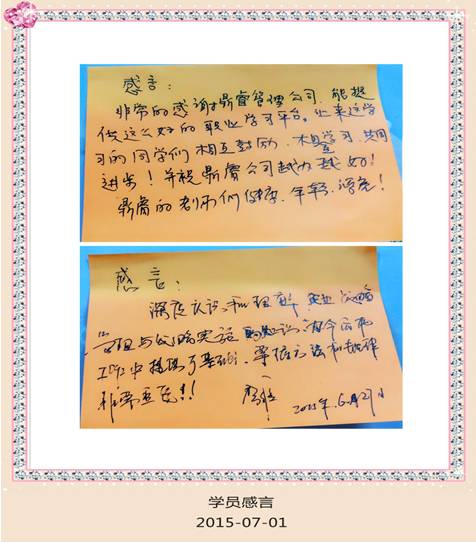 感言：
非常的感谢鼎睿管理公司，能提
供这么好的职业学习平台。让来这学
习的同学们相互鼓励，相互学习，共同
进步！并祝鼎睿公司越办越好！
鼎睿的老师们健康、年轻、漂亮！
感言：
深度认识和理解 战略
管理与战略实施的知识，为今后的
工作中 了基础，掌握方法和规律
非常重要！！
2015年6月27日
学员感言
2015-07-01